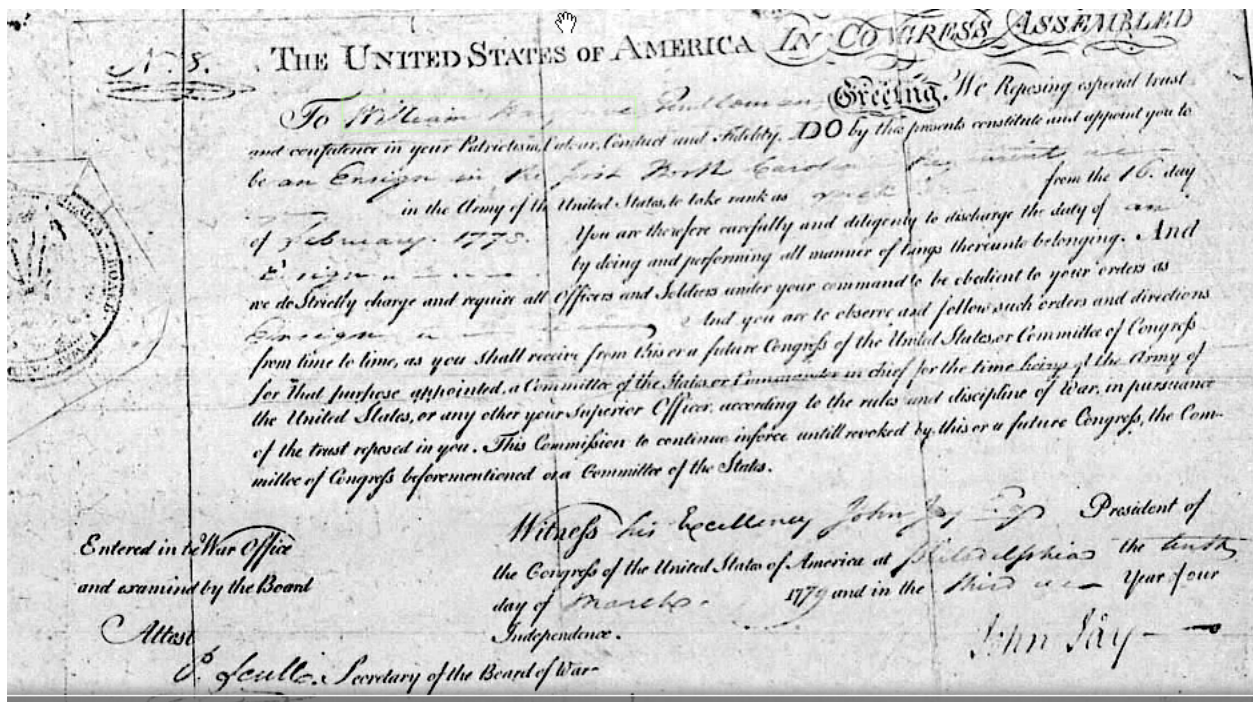 N. 8. THE UNITED STATES OF AMERICA IN CONGRESS ASSEMBLED
To William Gentleman Greeting. We Reposing especial trust
and confidence in your Patriotism, Valour, Conduct and Fidelity, DO by these presents constitute and appoint you to
be an Ensign in the first North Carolina Regiment
in the Army of the United States, to take rank as such from the 16. day
of February. 1778. You are therefore carefully and diligently to discharge the duty of an
Ensign by doing and performing all manner of things thereunto belonging. And
we do Strictly charge and require all Officers and Soldiers under your command to be obedient to your orders as
Ensign And you are to observe and follow such orders and directions
from time to time, as you shall receive from this or a future Congress of the United States, or Committee of Congress
for that purpose appointed, a Committee of the States, or Commander in chief for the time being of the Army of
the United States, or any other your Superior Officer, according to the rules and discipline of War, in pursuance
of the trust reposed in you. This Commission to continue in force untill revoked by this or a future Congress, the Com-
mittee of Congress beforementioned or a Committee of the States.
Witness his Excellency John Jay Esqr President of
the Congress of the United States of America at Philadelphia the tenth
day of March. 1779 and in the third Year of our
Independence.
Entered in the War Office
and examined by the Board
Attest
P. Scull. Secretary of the Board of War
John Jay